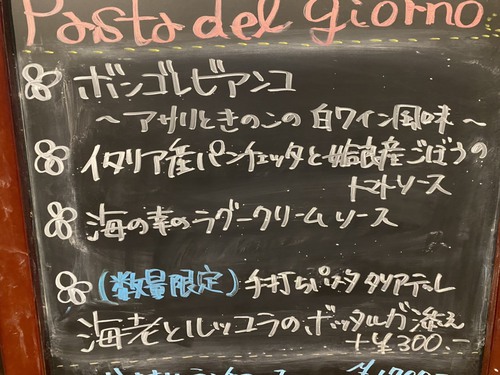 Pasta del giorno
ボンゴレビアンコ
～アサリときのこの白ワイン風味～
イタリア産パンチェッタと姶良産ごぼうの
トマトソース
海の幸のラグークリームソース
(数量限定)手打ちパスタ タリアテレ
海老とルッコラのボッタルガ添え
+¥300.-